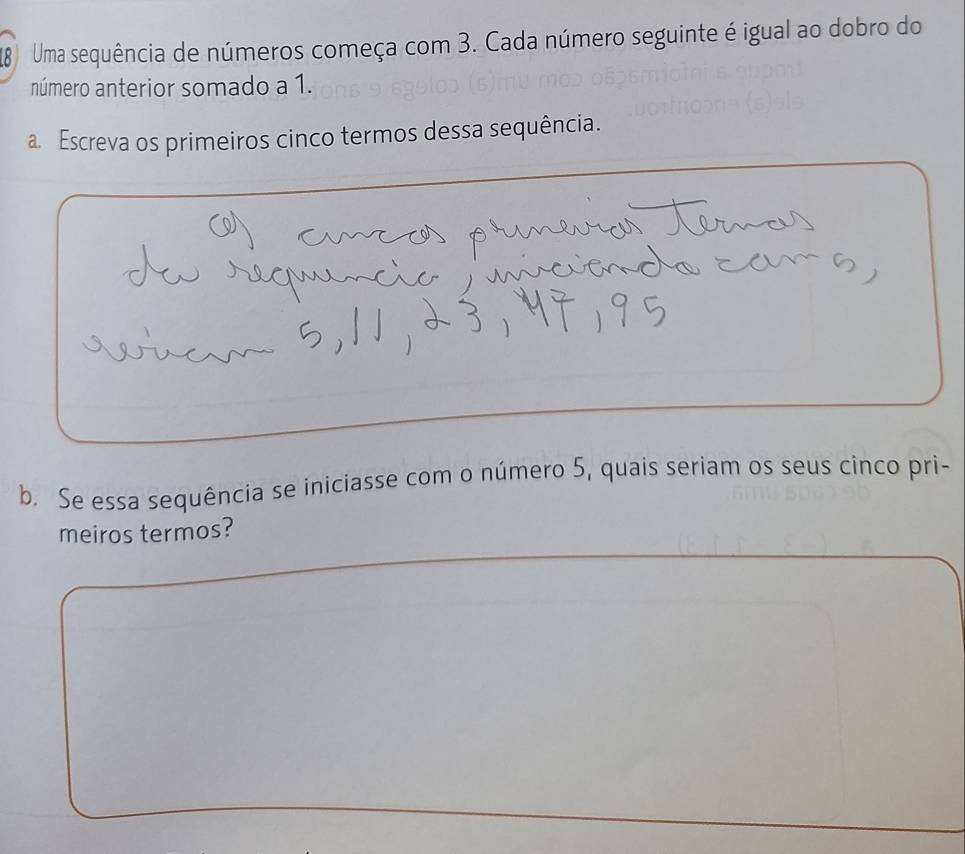 18 Uma sequência de números começa com 3. Cada número seguinte é igual ao dobro do
número anterior somado a 1.
a. Escreva os primeiros cinco termos dessa sequência.
os cincos primeiros termos
da sequencia, iniciando com 5,
seriam 5, 11, 23, 47, 95
b. Se essa sequência se iniciasse com o número 5, quais seriam os seus cinco pri-
meiros termos?